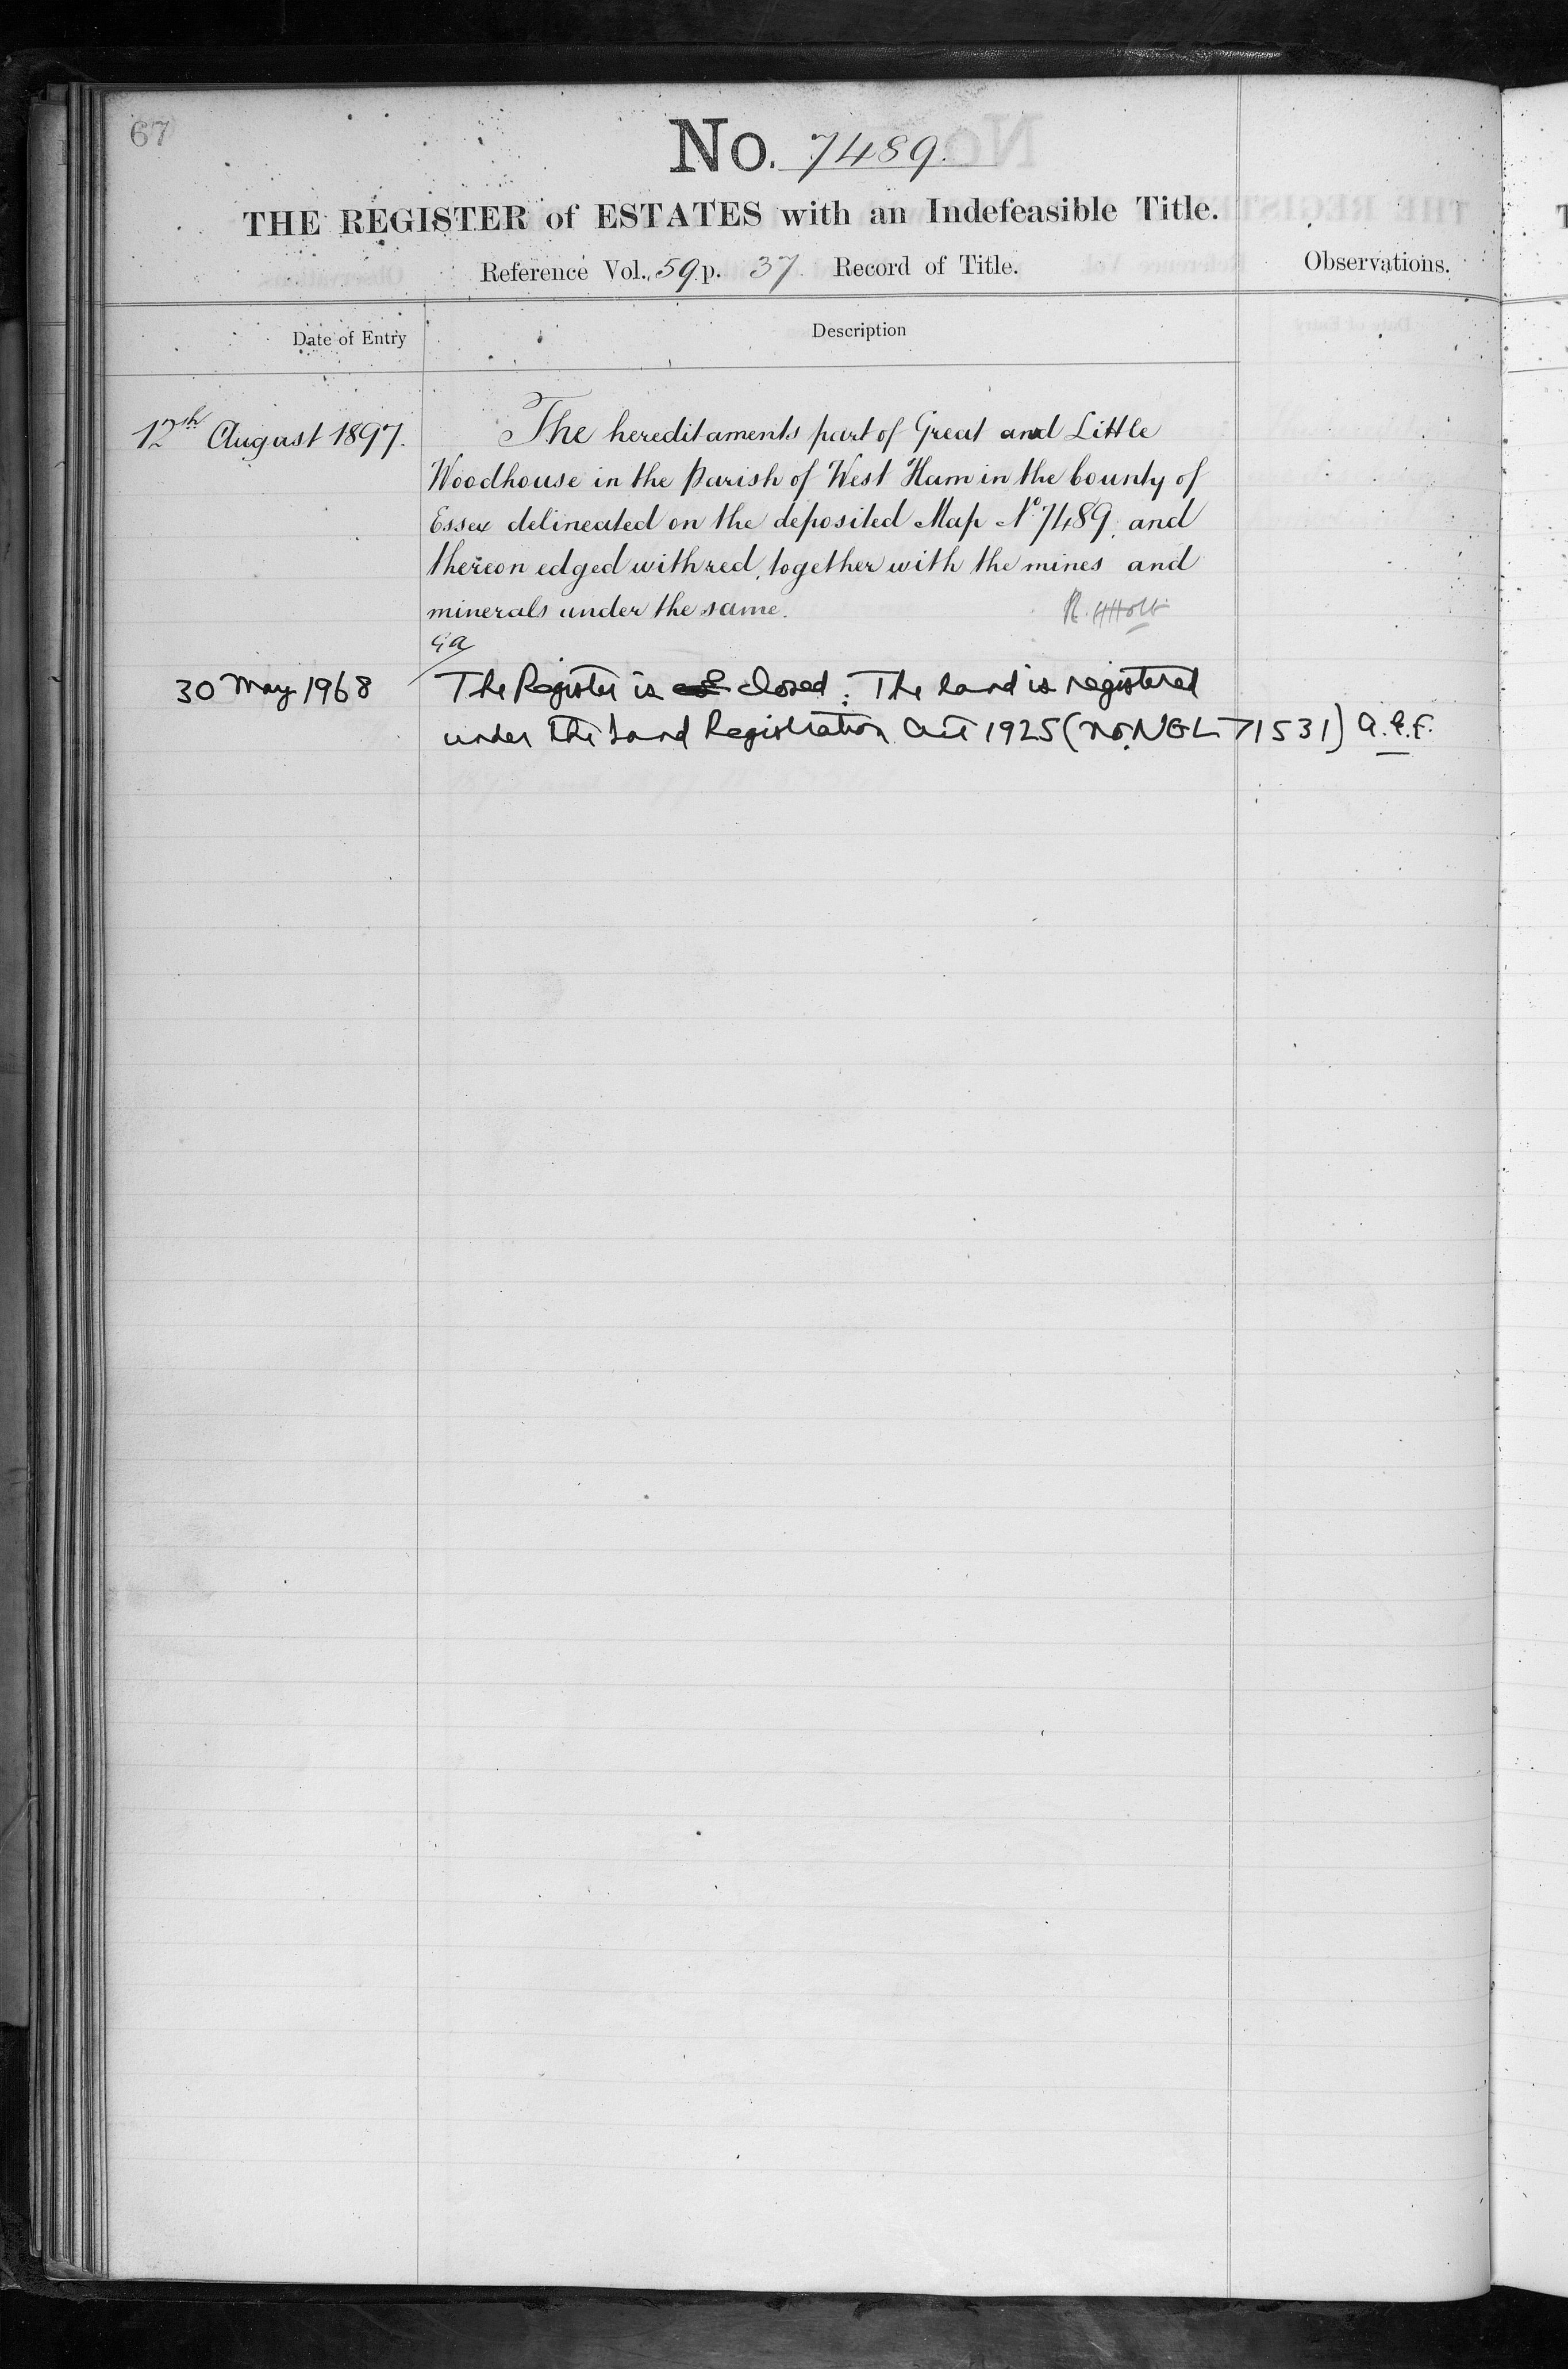 67
No. 7489.
THE REGISTER of ESTATES with an Indefeasible Title.
Reference Vol. 59 p. 37 Record of Title.
Observations.
Date of Entry
Description
12th August 1897.
The hereditaments part of Great and Little
Woodhouse in the Parish of West Ham in the County of
Essex delineated on the deposited Map No. 7489. and
thereon edged with red, together with the mines and
minerals under the same.
R. H Holt
30 May 1968
The Register is closed: The land is registered
under the Land Registration Act 1925 (No. NGL 71531) a.e.f.